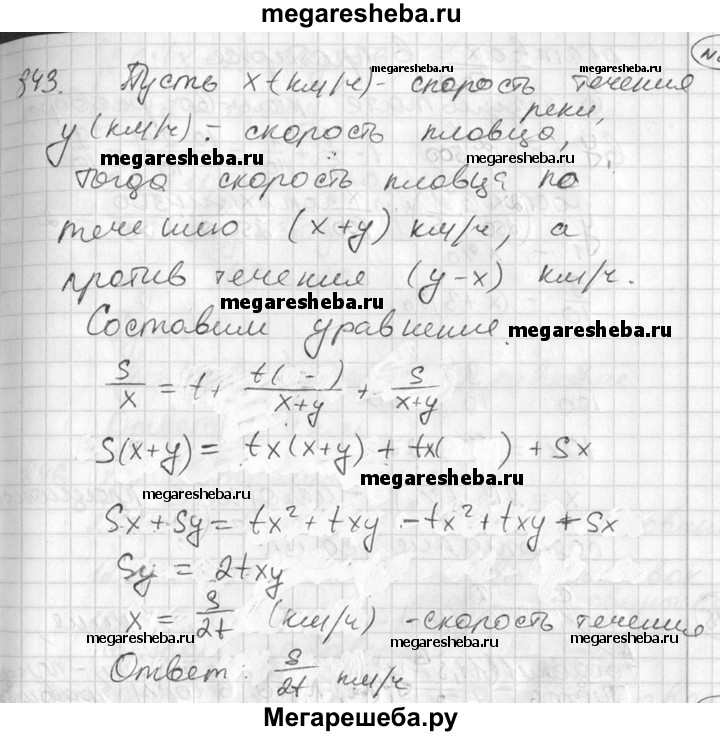 megaresheba.ru
343. Пусть x (км/ч) - скорость течения
megaresheba.ru megaresheba.ru
реки,
y (км/ч) - скорость пловца,
megaresheba.ru megaresheba.ru
тогда скорость пловца по
течению (x+y) км/ч, а
против течения (y-x) км/ч.
megaresheba.ru
Составим уравнение.
megaresheba.ru
S/x = t + t( - )/x+y + S/x+y
S(x+y) = tx(x+y) + tx( ) + Sx
megaresheba.ru
megaresheba.ru
Sx + Sy = tx² + txy - tx² + txy + Sx
Sy = 2txy
x = S/2t (км/ч) - скорость течения
megaresheba.ru megaresheba.ru megaresheba.ru
Ответ: S/2t км/ч
Мегарешеба.ру